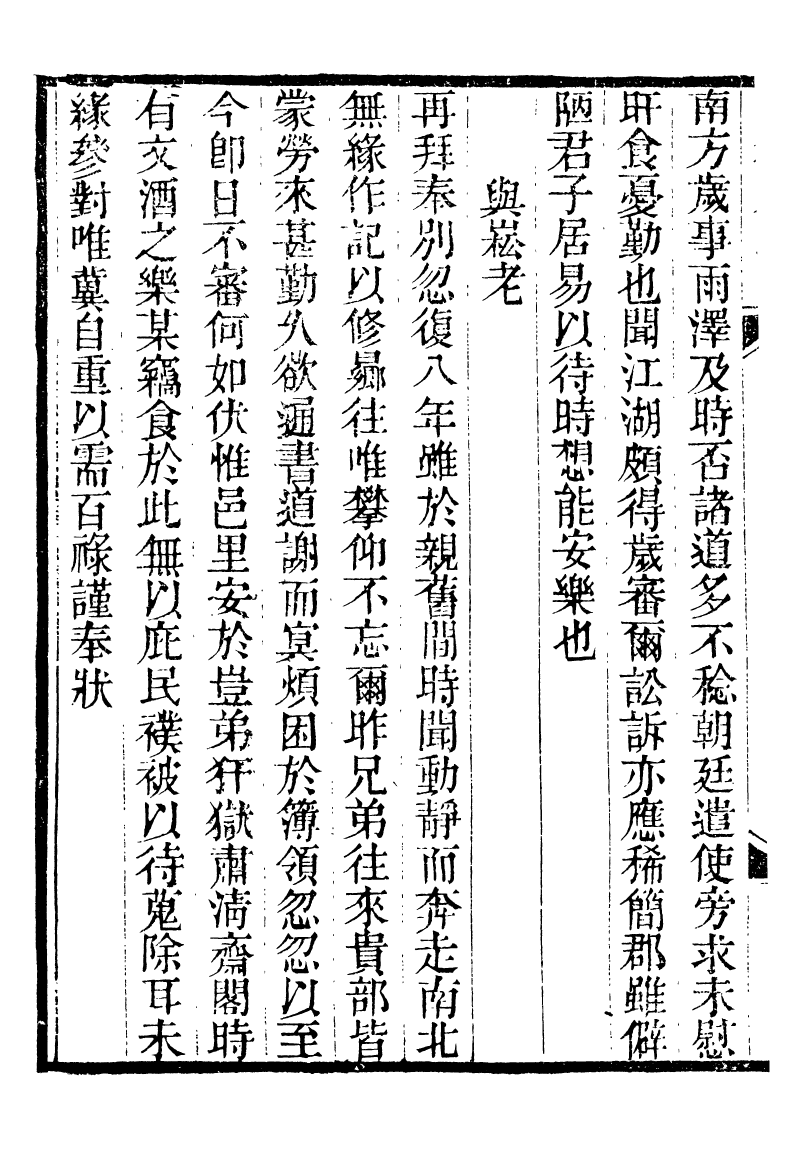 南方歲事雨澤及時否諸道多不稔朝廷遣使旁求未慰
旰食憂勤也聞江湖頗得歲審爾訟訴亦應稀簡郡雖僻
陋君子居易以待時想能安樂也
與崧老
再拜奉別忽復八年雖於親舊間時聞動靜而奔走南北
無緣作記以修曏往唯攀仰不忘爾昨兄弟往來貴部皆
蒙勞來甚勤久欲通書道謝而冥煩困於簿領忽忽以至
今卽日不審何如伏惟邑里安於豈弟犴獄肅清齋閣時
有文酒之樂某竊食於此無以庇民襆被以待蒐除耳未
緣參對唯冀自重以需百祿謹奉狀